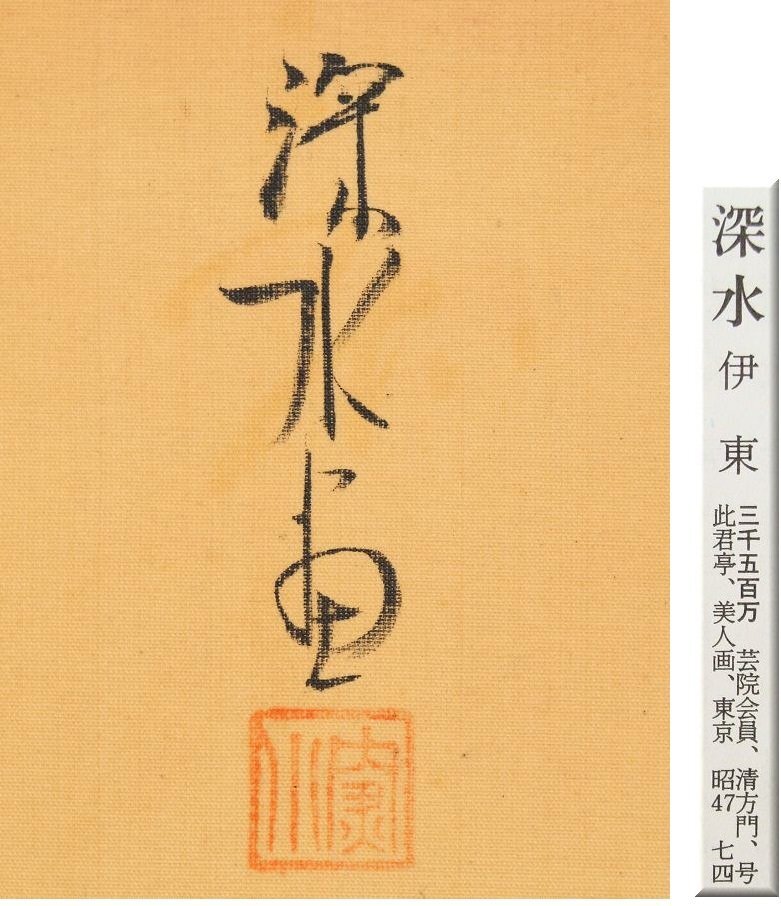 深水画
深水
伊東
三千五百万 芸院会員、清方門、号
此君亭、美人画、東京 昭47 七四